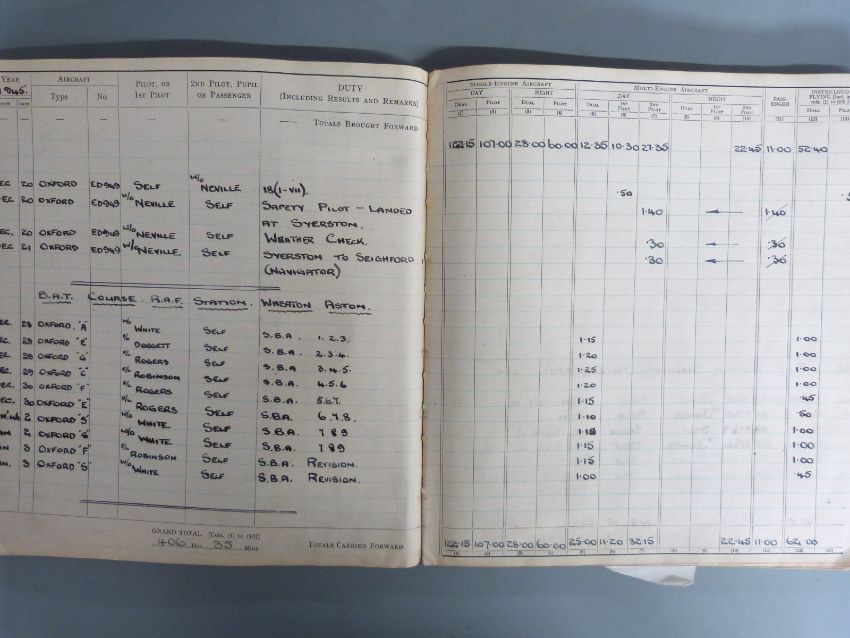 YEAR AIRCRAFT PILOT, OR 2ND PILOT, PUPIL DUTY
1945. Type No. 1ST PILOT OR PASSENGER (INCLUDING RESULTS AND REMARKS)
— — — — —— TOTALS BROUGHT FORWARD
EC 20 OXFORD ED949 SELF W/O NEVILLE 18(I-VII).
EC 20 OXFORD ED949 W/O NEVILLE SELF SAFETY PILOT - LANDED
AT SYERSTON.
EC. 20 OXFORD ED949 W/O NEVILLE SELF WEATHER CHECK.
EC 21 OXFORD ED949 W/O NEVILLE SELF SYERSTON TO SEIGHFORD
(NAVIGATOR)
B.A.T. COURSE. R.A.F. STATION. WHEATON ASTON.
EC. 28 OXFORD. "A" W/O WHITE SELF S.B.A. 1.2.3.
EC. 29 OXFORD "E" F/L DOGGETT SELF S.B.A. 2.3.4.
EC. 29 OXFORD "G" F/L ROGERS SELF S.B.A 3.4.5.
EC. 29 OXFORD "C" F/L ROBINSON SELF S.B.A. 4.5.6
EC. 30 OXFORD "F" F/L ROGERS SELF S.B.A. 5.6.7.
EC. 30 OXFORD "E" F/L ROGERS SELF S.B.A. 6.7.8.
2 OXFORD "S" W/O WHITE SELF S.B.A. 7 8 9
AN 2 OXFORD "G" W/O WHITE SELF S.B.A. 7 8 9
AN 3 OXFORD "F" F/L ROBINSON SELF S.B.A. REVISION.
AN. 3 OXFORD "S" W/O WHITE SELF S.B.A. REVISION.
GRAND TOTAL [Cols. (1) to (10)]
406 Hrs 35 Mins TOTALS CARRIED FORWARD
SINGLE-ENGINE AIRCRAFT MULTI-ENGINE AIRCRAFT PASS-ENGER INSTR
DAY NIGHT DAY NIGHT FLYING
DUAL PILOT DUAL PILOT DUAL 1ST PILOT 2ND PILOT DUAL 1ST PILOT 2ND PILOT DUAL
(1) (2) (3) (4) (5) (6) (7) (8) (9) (10) (11) (12)
122.15 107.00 28.00 60.00 12.35 10.30 27.35 22.45 11.00 52.40
.50
1.40 ← 1.40
.30 ← .30
.30 ← .30
1.15 1.00
1.20 1.00
1.25 1.00
1.20 1.00
1.15 .45
1.10 .50
1.15 1.00
1.15 1.00
1.15 1.00
1.00 .45
122.15 107.00 28.00 60.00 25.00 11.20 32.15 22.45 11.00 62.00
(1) (2) (3) (4) (5) (6) (7) (8) (9) (10) (11) (12) (13)